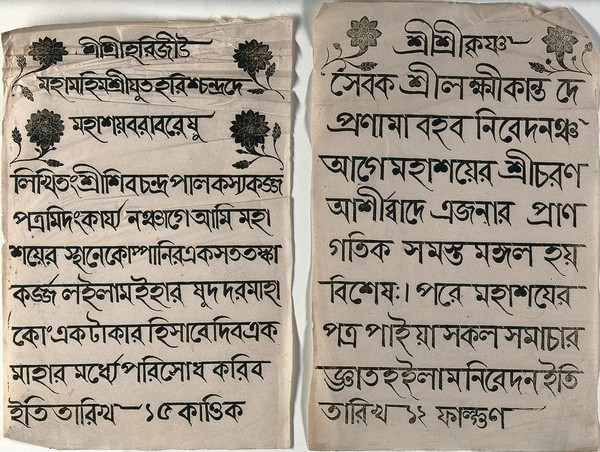 শ্রীশ্রীহরিজীউ
মহামহিমশ্রীযুতহরিশ্চন্দ্রদে
মহাশয়বরাবরেষু
লিখিতংশ্রীশিবচন্দ্রপালকস্যকর্জ্জ
পত্রমিদংকার্য্য নঞ্চাগে আমি মহা
শয়ের স্থানেকোম্পানিরএকসততঙ্কা
কর্জ্জ লইলামইহার ষুদ দরমাহা
কোং একটাকার হিসাবেদিবএক
মাহার মর্ধ্যে পরিসোধ করিব
ইতি তারিখ — ১৫ কার্ত্তিক
শ্রীশ্রীকৃষ্ণঃ
সেবক শ্রীলক্ষ্মীকান্ত দে
প্রণামা বহব নিবেদনঞ্চ
আগে মহাশয়ের শ্রীচরণ
আশীর্ব্বাদে এজনার প্রাণ
গতিক সমস্ত মঙ্গল হয়
বিশেষঃ। পরে মহাশয়ের
পত্র পাইয়া সকল সমাচার
জ্ঞাত হইলাম নিবেদন ইতি
তারিখ ১২ ফাল্গুণ